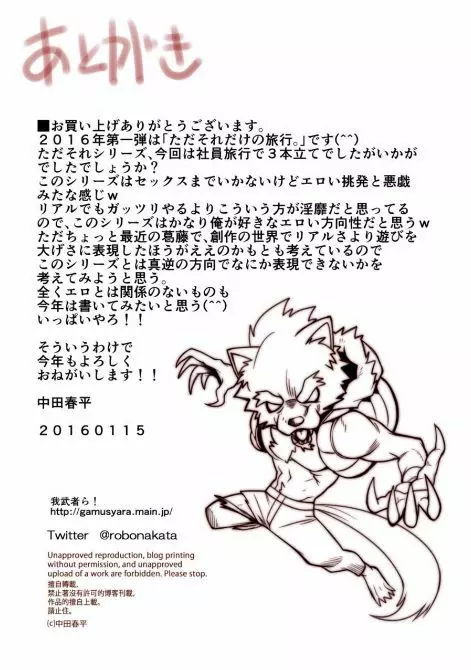 あとがき
■お買い上げありがとうございます。
２０１６年第一弾は「ただそれだけの旅行。」です(^^)
ただそれシリーズ、今回は社員旅行で３本立てでしたがいかが
でしたでしょうか？
このシリーズはセックスまでいかないけどエロい挑発と悪戯
みたな感じｗ
リアルでもガッツリやるよりこういう方が淫靡だと思ってる
ので、このシリーズはかなり俺が好きなエロい方向性だと思うｗ
ただちょっと最近の葛藤で、創作の世界でリアルさより遊びを
大げさに表現したほうがええのかもとも考えているので
このシリーズとは真逆の方向でなにか表現できないかを
考えてみようと思う。
全くエロとは関係のないものも
今年は書いてみたいと思う(^^)
いっぱいやろ！！
そういうわけで
今年もよろしく
おねがいします！！
中田春平
２０１６０１１５
我武者ら！
http://gamusyara.main.jp/
Twitter @robonakata
Unapproved reproduction, blog printing
without permission, and unapproved
upload of a work are forbidden. Please stop.
擅自轉載．
禁止著沒有許可的博客刊載，
作品的擅自上載。
請止住。
(c)中田春平